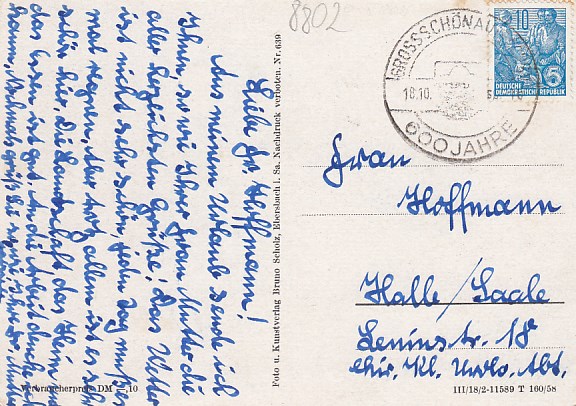 8802
GROSSSCHÖNAU
18.10.
600 JAHRE
10
DEUTSCHE
DEMOKRATISCHE REPUBLIK
5
Liebe Fr. Hoffmann!
Aus meinem Urlaub sende ich
Ihnen, sowie Ihrer Frau Mutter die
allerherzlichsten Grüße! Das Wetter
ist nicht sehr schön, jeden Tag muß es
mal regnen, aber trotz allem ist es sehr
schön hier. Die Landschaft, das Heim und
das Essen ist gut. An die Arbeit denke ich
Foto u. Kunstverlag Bruno Scholz, Ebersbach i. Sa. Nachdruck verboten. Nr. 639
Frau
Hoffmann
Halle/Saale
Leninstr. 18
Chir. Kl. Urolo. Abt.
Verbraucherpreis DM -,10
III/18/2-11589 T 160/58